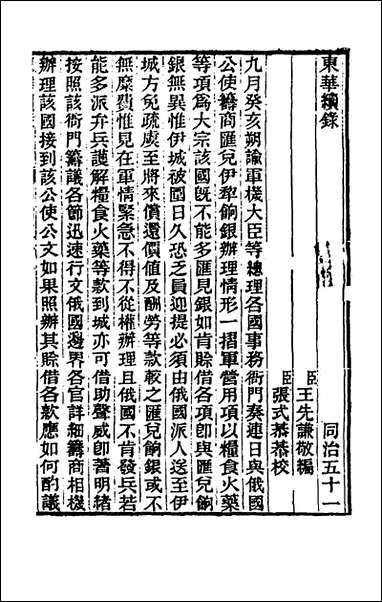 東華續錄
同治五十一
臣王先謙敬編
臣張式恭恭校
九月癸亥朔諭軍機大臣等總理各國事務衙門奏連日與俄國
公使籌商匯兌伊犂餉銀辦理情形一摺軍營用項以糧食火藥
等項爲大宗該國旣不能多匯見銀如肯賒借各項卽與匯兌餉
銀無異惟伊城被圍日久恐乏員迎提必須由俄國派人送至伊
城方免疏虞至將來償還價值及酬勞等款較之匯兌餉銀或不
無糜費惟見在軍情緊急不得不從權辦理且俄國不肯發兵若
能多派弁兵護解糧食火藥等款到城亦可借助聲威卽著明緖
按照該衙門籌議各節迅速行文俄國邊界各官詳細籌商相機
辦理該國接到該公使公文如果照辦其賒借各款應如何酌議